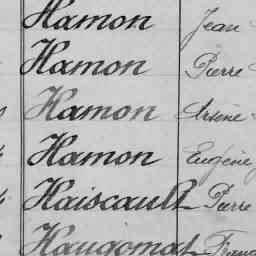 Hamon Jean
Hamon Pierre
Hamon Arsène
Hamon Eugène
Haiscault Pierre
Haugomat